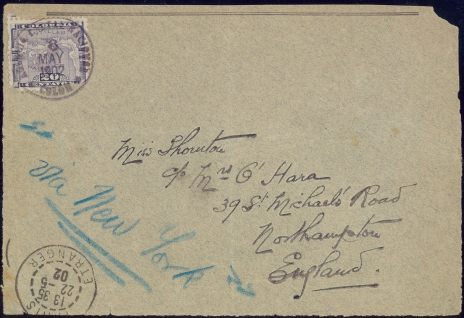 8
MAY
1902
20
Miss Thornton
c/o Mrs O'Hara
39 St Michael's Road
Northampton
England.
via New York
ETRANGER
22
02